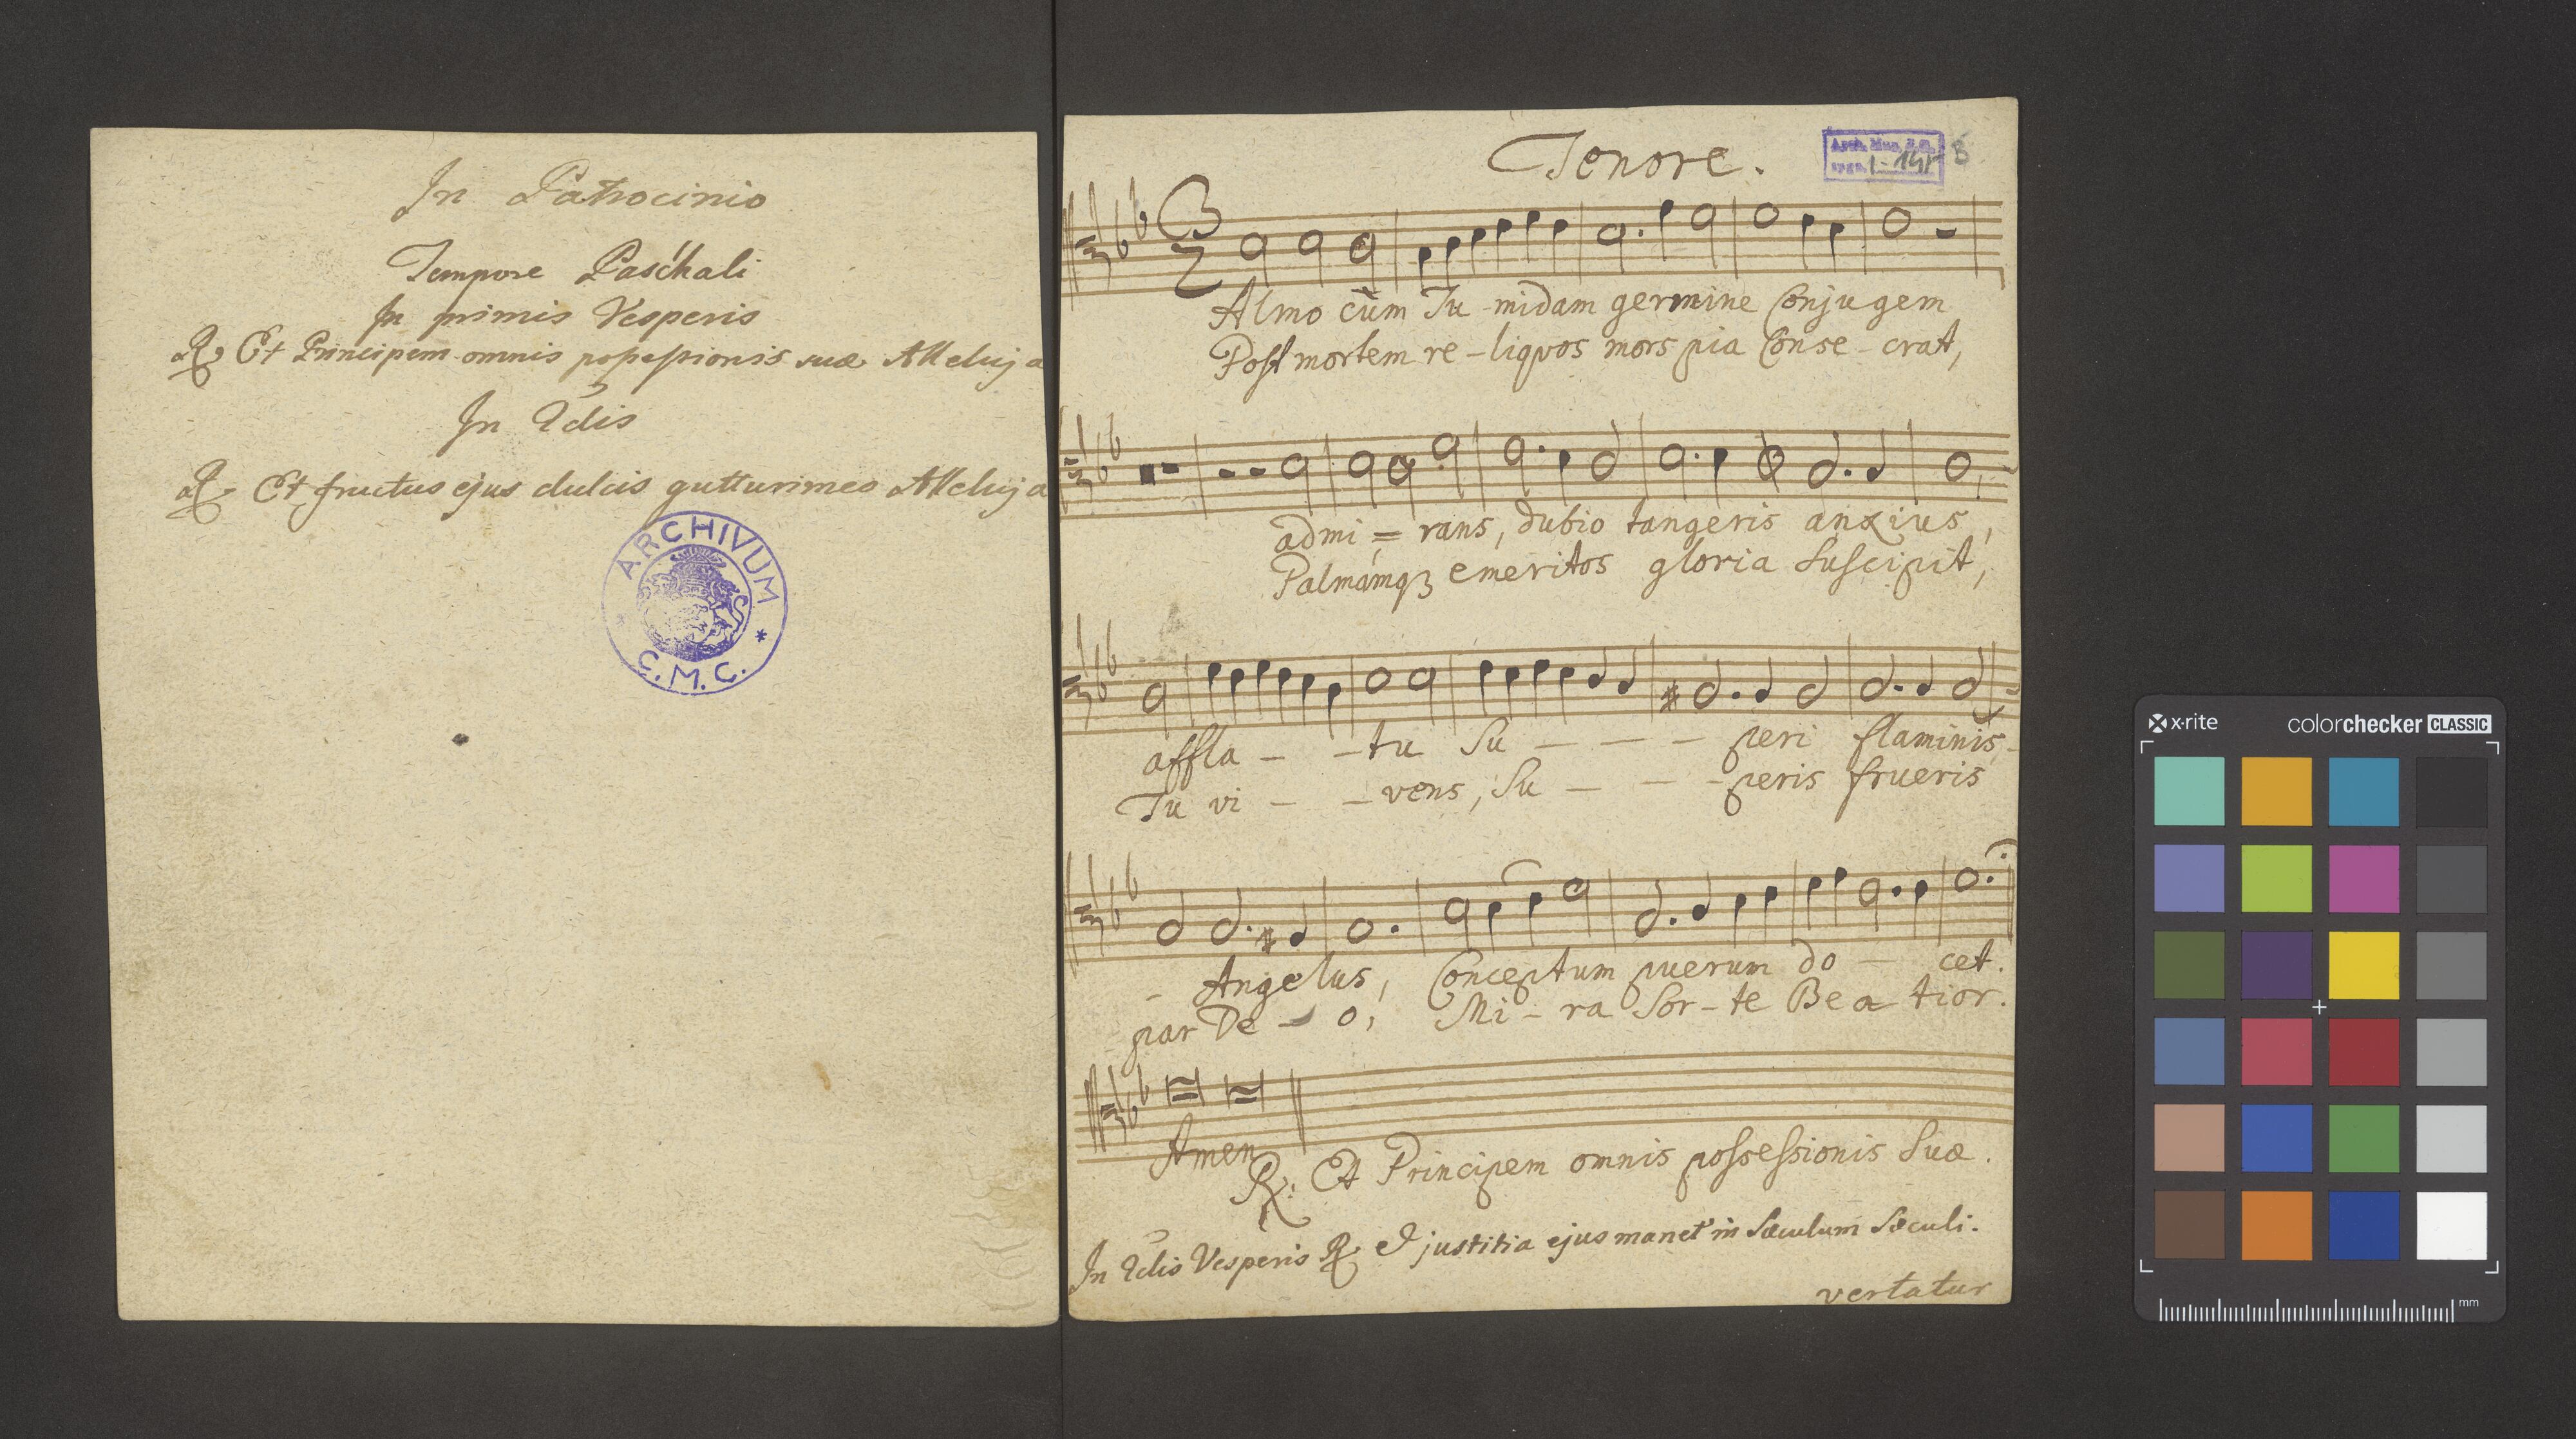 In Patrocinio
Tempore Paschali
In primis Vesperis
℟ Et Principem omnis possessionis suæ Alleluja
In 2dis
℟ Et fructus ejus dulcis gutturi meo Alleluja
ARCHIVUM
C. M. C.
Tenore.
Arch. Mus.
I-145 B
Almo cùm Tu-midam germine Conjugem
Post mortem re-liquos mors pia Conse-crat,
admi=rans, dubio tangeris anxius,
Palmámqꝫ emeritos gloria Suscipit,
affla - - tu Su - - - peri flaminis
Tu vi - - vens, Su - - - peris frueris
- Angelus, Conceptum puerum do - cet.
par De - o, Mi - ra Sor-te Bea-tior.
Amen
℟. Et Principem omnis possessionis Suæ.
In 2dis Vesperis ℟ et justitia ejus manet in Sæculum Sæculi.
vertatur
x·rite
colorchecker CLASSIC
mm